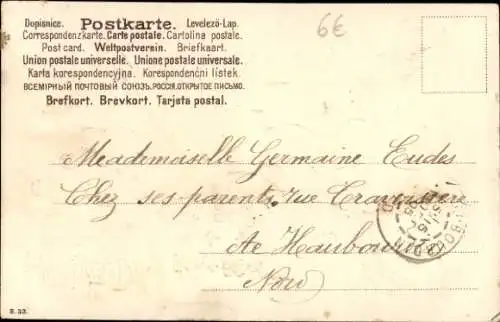 Dopisnice. Postkarte. Levelezö-Lap.
6€
Correspondenzkarte. Carte postale. Cartolina postale.
Post card. Weltpostverein. Briefkaart.
Union postale universelle. Unione postale universale.
Karta korespondencyjna. Korespondenčni listek.
ВСЕМIРНЫЙ ПОЧТОВЫЙ СОЮЗЪ. РОССIЯ. ОТКРЫТОЕ ПИСЬМО.
Brefkort. Brevkort. Tarjeta postal.
Mademoiselle Germaine Eudes
Chez ses parents, rue Traversière
Haubourdin
Nord
S. 33.